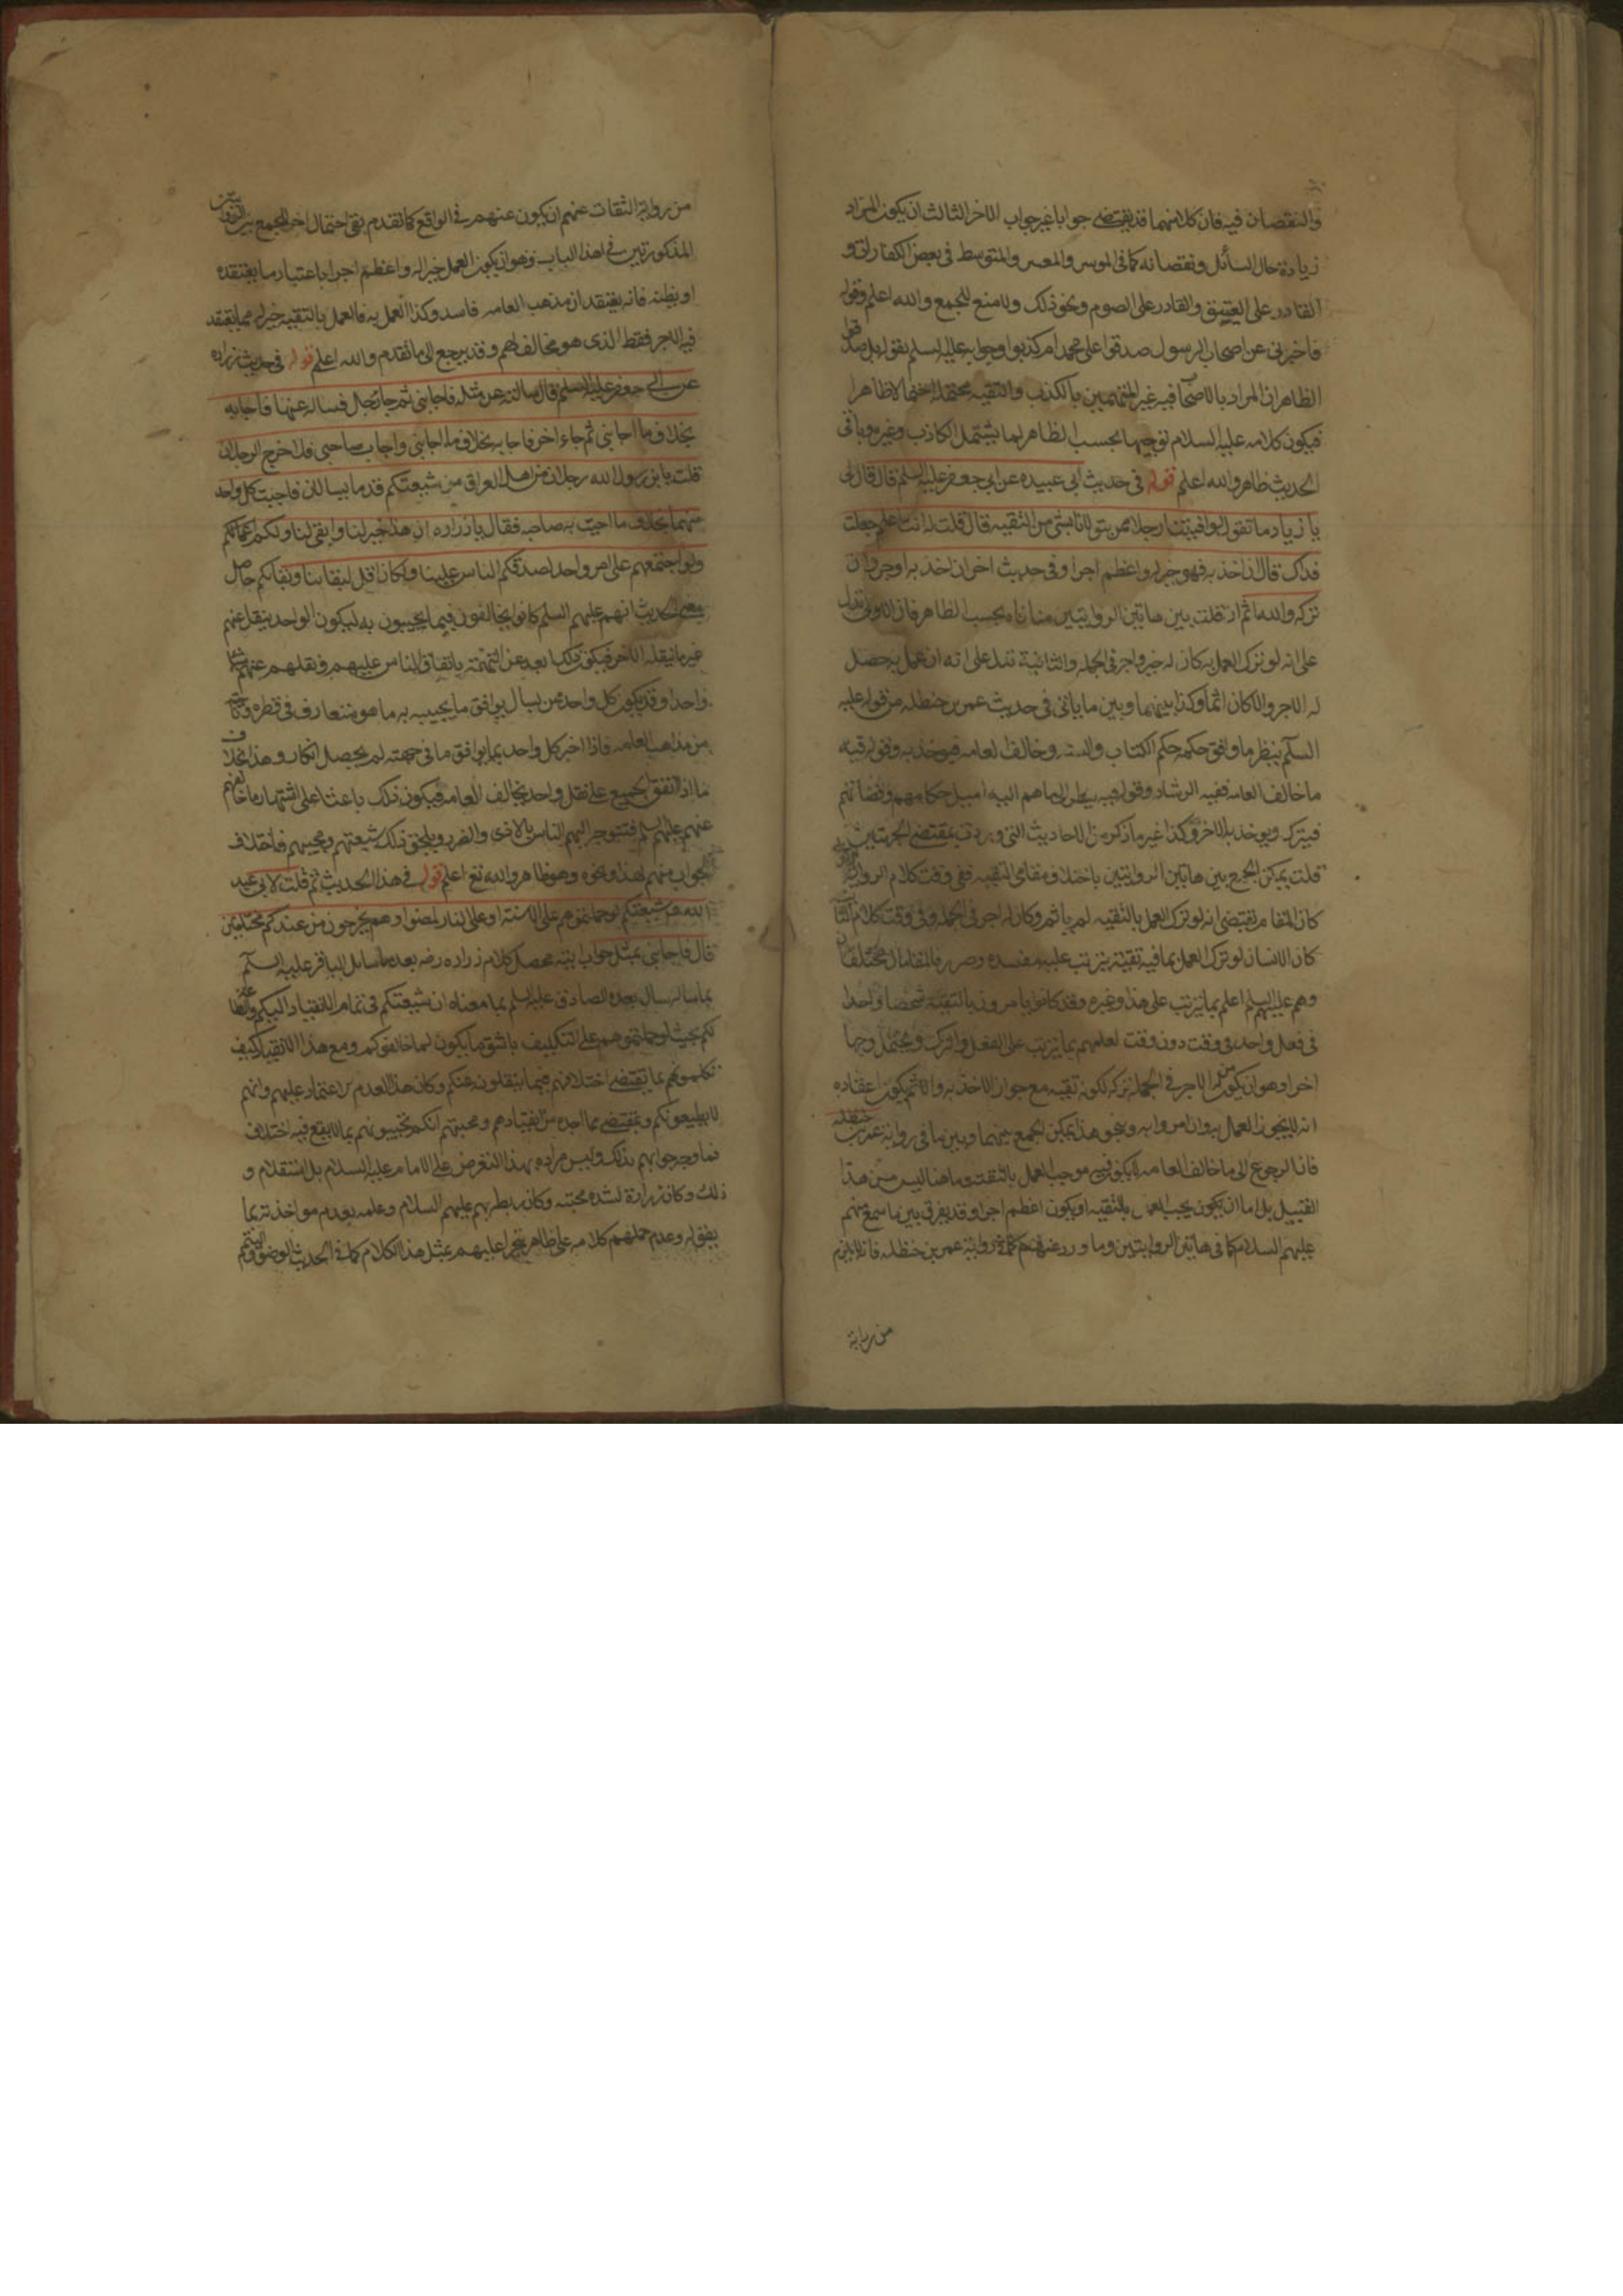 والنقصان فيه فان كلا منهما قد يقتضي جوابا غير جواب الاخر الثالث ان يكون المراد
زيادة حال السائل ونقصانه كما في الموسر والمعسر والمتوسط في بعض الكفارات و
القادر على العتق والقادر على الصوم ونحو ذلك ولا منع للجمع والله اعلم وقوله
فاخبرني عن اصحاب الرسول صدقوا على محمد ام كذبوا وجوابه عليه السلم بقوله بل صدقوا
الظاهر ان المراد بالاصحاب فيه غير المتهمين بالكذب والتقية محتملة احتمالا ظاهرا
فيكون كلامه عليه السلام توجيها بحسب الظاهر لما يشتمل الكاذب وغيره وباقي
الحديث ظاهر والله اعلم قوله في حديث ابي عبيده عن ابي جعفر عليه السلم قال قال لي
يا زياد ما تقول لو افتينا رجلا ممن يتولانا بشي من التقيه قال قلت له انت اعلم جعلت
فداك قال ان اخذ به فهو خير له واعظم اجرا وفي حديث اخر ان اخذ به اوجر وان
تركه والله اثم ان قلت بين هاتين الروايتين منافاه بحسب الظاهر فان الاولى تدل
على انه لو ترك العمل به كان له خير واجر في الجمله والثانية تدل على انه ان عمل به حصل
له الاجر والا كان اثما وكذا بينهما وبين ما ياتي في حديث عمر بن حنظله من قوله عليه
السلم ينظر ما وافق حكمه حكم الكتاب والسنه وخالف العامه فيوخذ به وقوله فيه
ما خالف العامه ففيه الرشاد وقوله فيه ينظر الى ما هم اليه اميل حكامهم وقضاتهم
فيترك ويوخذ بالاخر وكذا غير ما ذكر من الاحاديث التي وردت بمقتضى
قلت يمكن الجمع بين هاتين الروايتين باختلاف مقامي التقيه ففي وقت كلام الرواية
كان المقام يقتضي انه لو ترك العمل بالتقيه لم ياثم وكان له اجر في الجمله وفي وقت كلام
كان الانسان لو ترك العمل بما فيه تقية يترتب عليه مفسده وضرر فالمقامان مختلفان
وهم عليهم السلم اعلم بما يترتب على هذا وغيره وقد كانوا يامرون بالتقية شخصا واحدا
في فعل واحد في وقت دون وقت لعلمهم بما يترتب على الفعل والترك ويحتمل وجها
اخر وهو ان يكون له الاجر في الجملة تركه لكونه تقيه مع جواز الاخذ به والاثم يكون اعتقاده
انه لا يجوز العمل به وان امروا به وبنحو هذا يمكن الجمع بينهما وبين ما في رواية عمر بن حنظله
فان الرجوع الى ما خالف العامه موجب العمل بالتقية وما هنا ليس من هذا
القبيل بل اما ان يكون يجب العمل بالتقيه او يكون اعظم اجرا وقد يفرق بين ما سمع منهم
عليهم السلام كما في هاتين الروايتين وما ورد عنهم كما في رواية عمر بن حنظله فانه لا يلزم
من رواية
من رواية الثقات عنهم ان يكون عنهم في الواقع كما تقدم بقي احتمال اخر للجمع بين الروايتين
المذكورتين في هذا الباب وهو ان يكون العمل خيرا له واعظم اجرا باعتبار ما يعتقده
او يظنه فانه يعتقد ان مذهب العامه فاسد وكذا العمل به فالعمل بالتقيه خير له مما يعتقد
فيه الاجر فقط الذي هو مخالف لهم وقد يرجع الى ما تقدم والله اعلم قوله في حديث زراره
عن ابي جعفر عليه السلم قال سالته عن مثله فاجابني ثم جائه رجل فساله عنها فاجابه
بخلاف ما اجابني ثم جاء اخر فاجابه بخلاف ما اجابني واجاب صاحبي فلما خرج الرجلان
قلت يا بن رسول الله رجلان من اهل العراق من شيعتكم قدما يسالان فاجبت كل واحد
منهما بخلاف ما اجبت به صاحبه فقال يا زراره ان هذا خير لنا وابقى لنا ولكم
ولو اجتمعتم على امر واحد لصدقكم الناس علينا ولكان اقل لبقائنا وبقائكم حاصل
معنى الحديث انهم عليهم السلم كانوا يخالفون فيما يجيبون به ليكون الواحد ينقل عنهم
غير ما ينقله الاخر فيكون ذلك ابعد عن التهمة باتفاق الناس عليهم ونقلهم عنهم
واحدا وقد يكون كل واحد ممن يسال يوافق ما يجيبه به ما هو متعارف في قطره
من مذاهب العامه فاذا اخبر كل واحد بما يوافق ما في جهته لم يحصل انكار وهذا بخلاف
ما اذا اتفق الجميع على نقل واحد يخالف العامه فيكون ذلك باعثا على اشتهار ما خالفهم
عنهم عليهم السلم فتتوجه اليهم الناس بالاذى والضرر ويلحق ذلك شيعتهم ومحبيهم فاختلاف
الجواب منهم لهذا ونحوه وهو ظاهر والله تع اعلم قوله في هذا الحديث ثم قلت لابي عبد
الله ع شيعتكم لو حملتموهم على الاسنة او على النار لمضوا وهم يخرجون من عندكم مختلفين
قال فاجابني بمثل جواب ابيه محصل كلام زراره رضه بعد ما سال الباقر عليه السلم
بما ساله سال بعده الصادق عليه السلم بما معناه ان شيعتكم في تمام الانقياد اليكم والطاعة
لكم بحيث لو حملتموهم على التكليف باشق ما يكون لما خالفوكم ومع هذا الانقياد كيف
تكلموهم بما يقتضي اختلافهم فيما ينقلون عنكم وكان هذا لعدم اعتماد عليهم وانهم
لا يطيعونكم ومقتضى ما اجده من انقيادهم ومحبتهم انكم تجيبونهم بما لا يقع فيه اختلاف
فما وجه جوابهم بذلك وليس مراده بهذا التعرض على الامام عليه السلام بل استعلام
ذلك وكان زرارة لشدة محبته وكان عليهم السلام وعلمه بعدم مواخذته بما
يقوله وعدم حملهم كلامه على ظاهره عليهم بمثل هذا الكلام كما في الحديث الوضوء